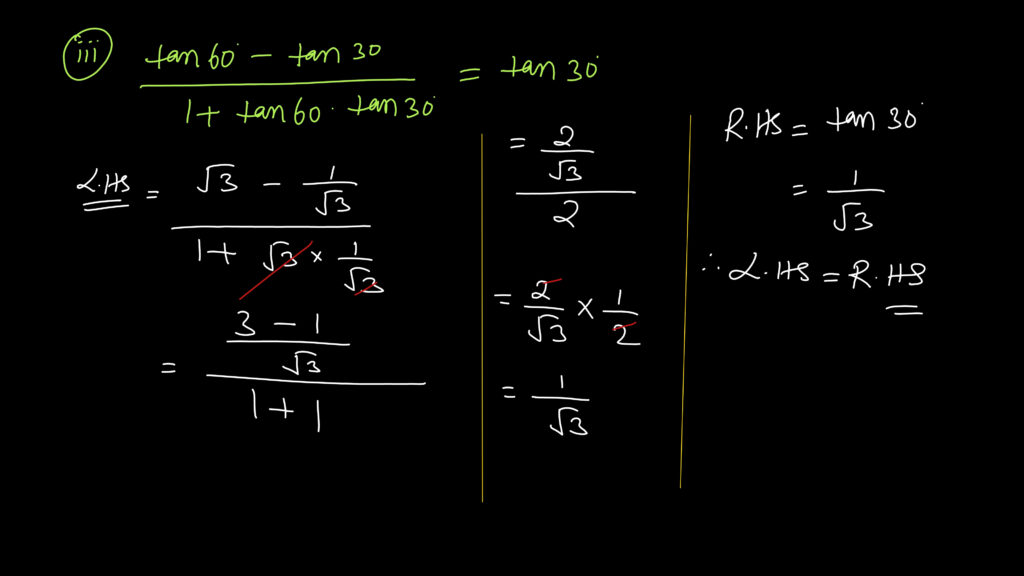 iii (tan 60° - tan 30) / (1 + tan 60 · tan 30°) = tan 30°
L.HS = (√3 - 1/√3) / (1 + √3 × 1/√3)
= ((3 - 1)/√3) / (1 + 1)
= (2/√3) / 2
= 2/√3 × 1/2
= 1/√3
R.HS = tan 30°
= 1/√3
∴ L.HS = R.HS